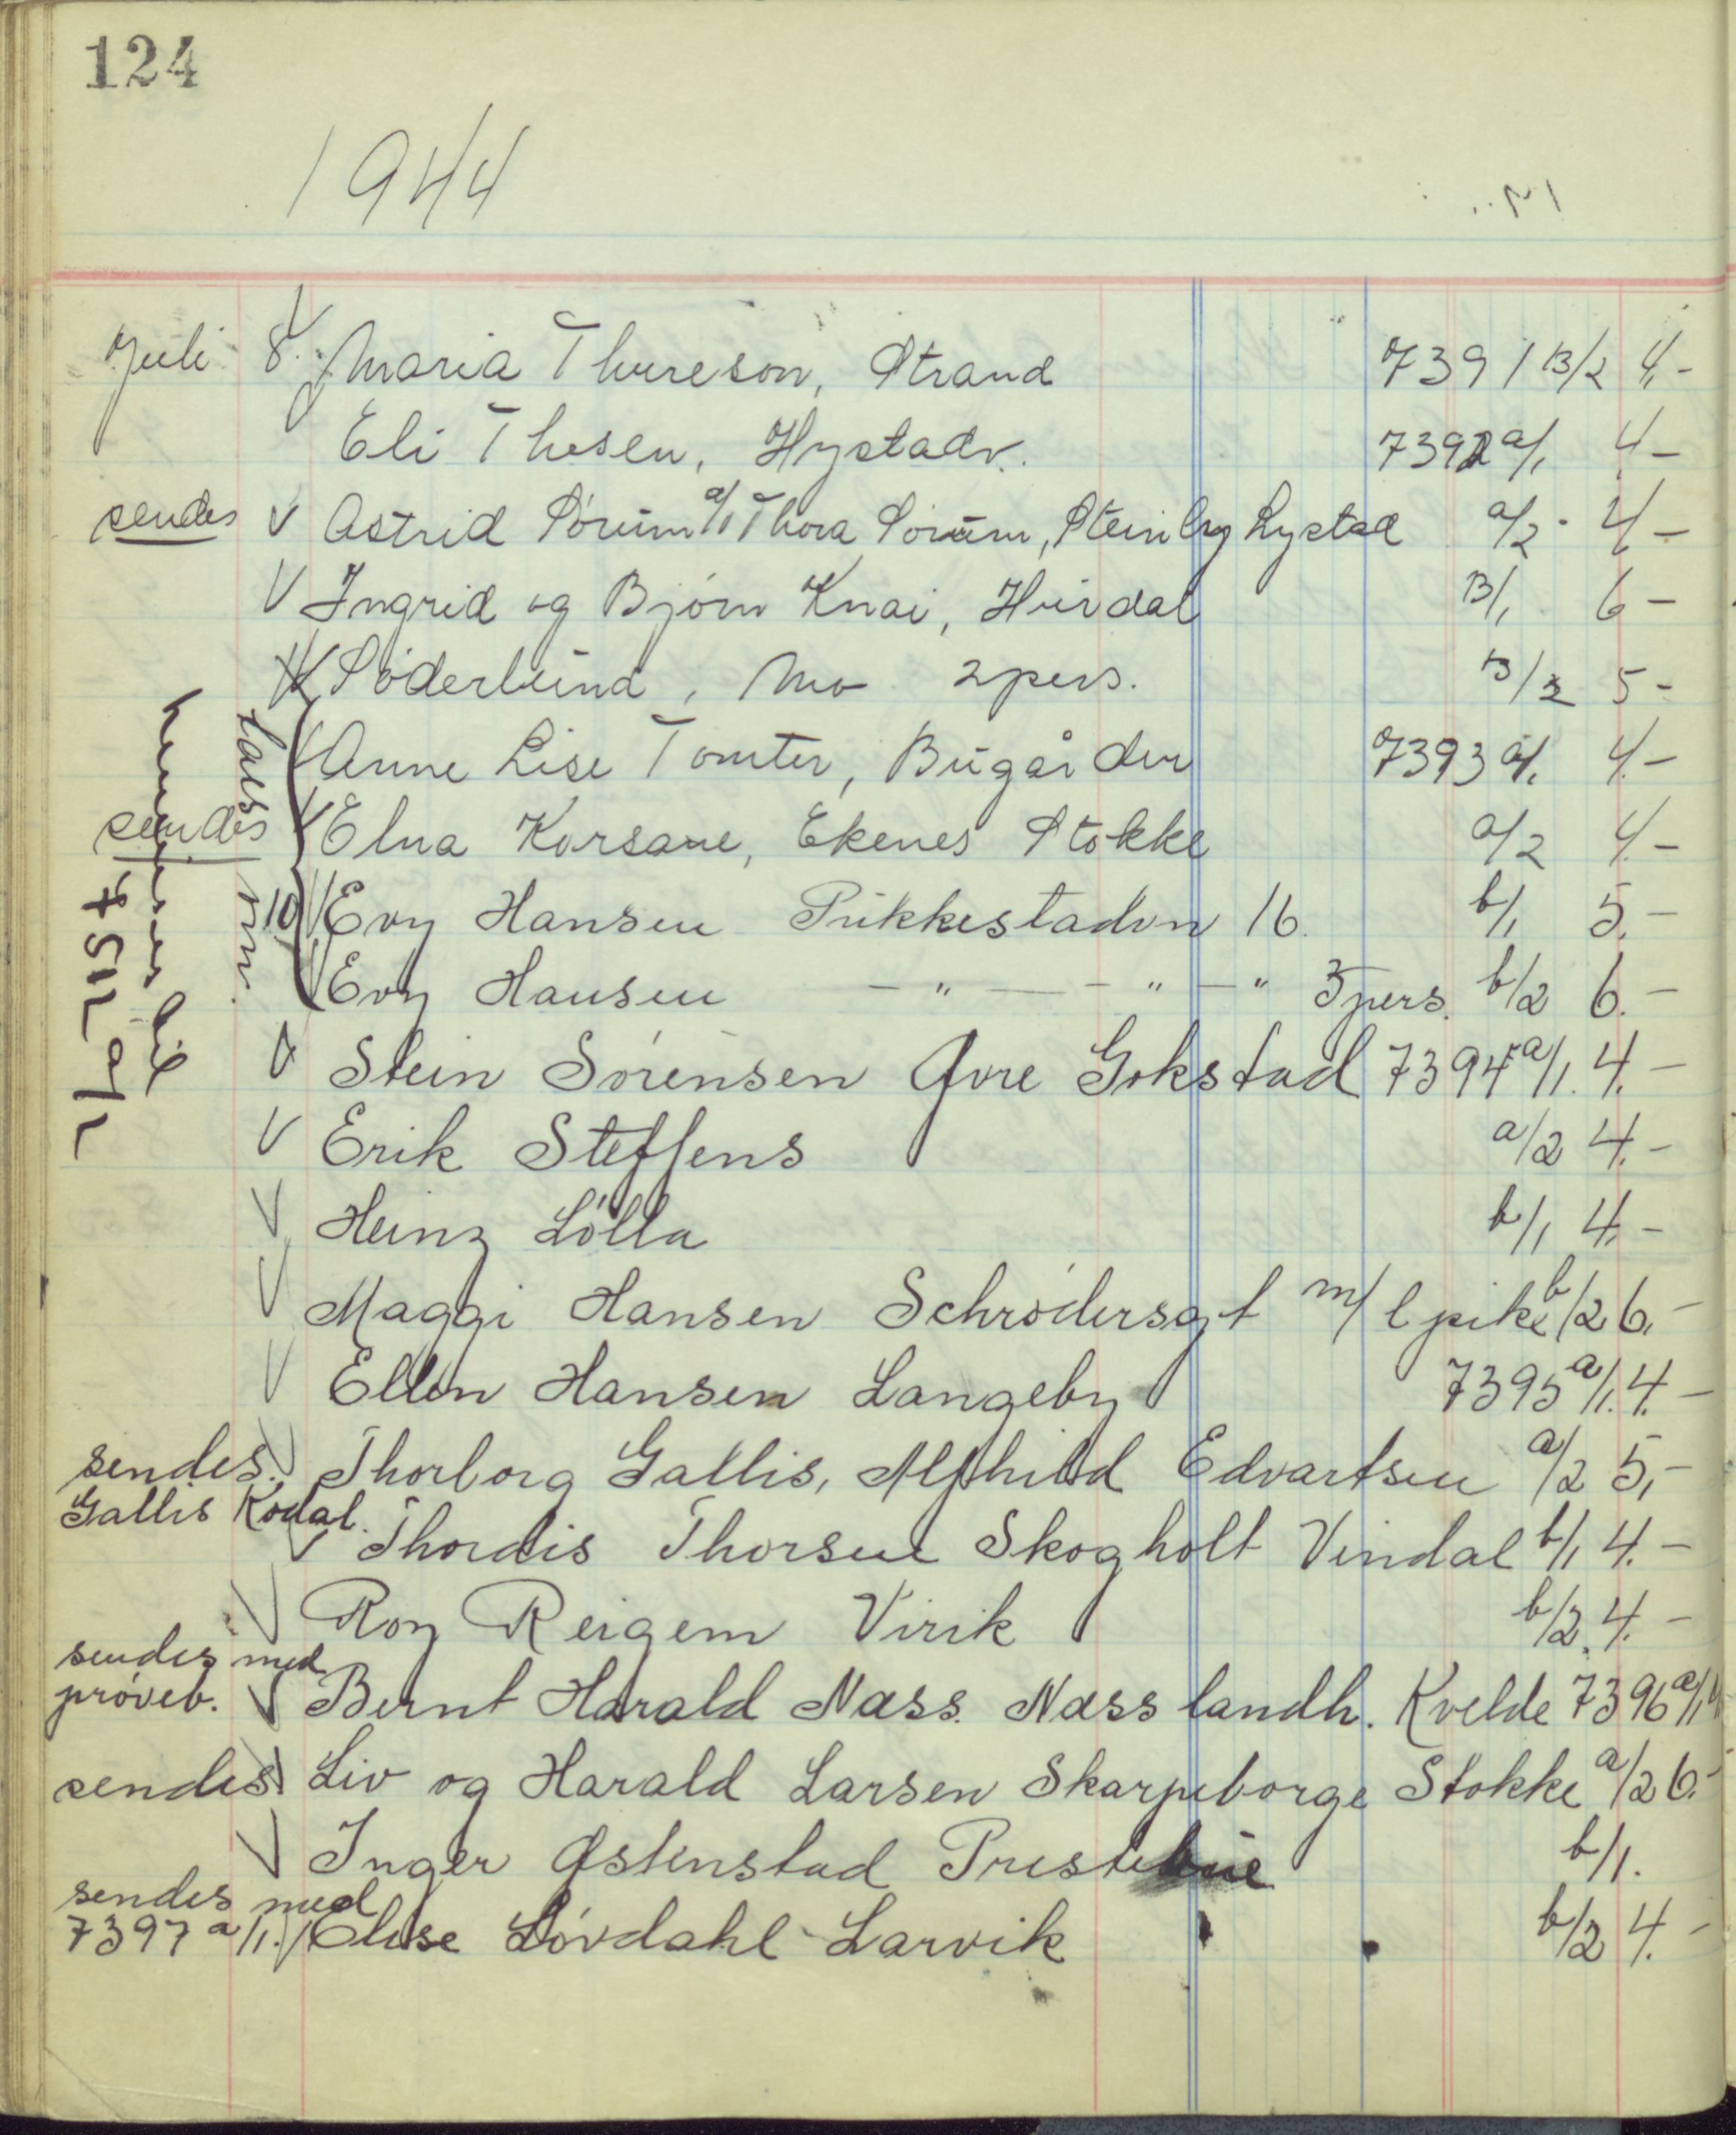 124
1944
Juli 8. Maria Thureson, Strand 7391 B/2 4,-
Eli Thosen, Hystadv. 7392 a/1 4-
sendes V Astrid Sørum a/1 Thora Sørum, Steinby Lystad a/2 - 4-
V Ingrid og Bjørn Knai, Hvirdal B/1 6-
V Søderlund, Mo 2 pers. B/2 5-
V Anne Lise Tomter, Bugården 7393 a/1 4.-
sendes V Elna Korsane, Ekenes Stokke a/2 4.-
10 V Evy Hansen Prikkestadvn 16. b/1 5.-
V Evy Hansen -"- -"-" 3 pers. b/2 6.-
V Stein Sørensen Øvre Gokstad 7394 a/1. 4.-
V Erik Steffens a/2 4.-
V Heinz Lølla b/1 4.-
V Maggi Hansen Schrødersgt m/ l pike b/2 6,-
V Ellen Hansen Langeby 7395 a/1. 4.-
sendes. V Thorborg Gallis, Alfhild Edvartsen a/2 5,-
Gallis Kodal.
V Thordis Thorsen Skogholt Vindal b/1 4.-
V Roy Reigem Virik b/2. 4.-
sendes med
prøveb. V Bernt Harald Næss. Næss landh. Kvelde 7396 a/1 4
sendes V Liv og Harald Larsen Skarpeborge Stokke a/2 6.-
V Inger Østenstad Prestebûe b/1.
sendes med
7397 a/1. V Else Løvdahl Larvik b/2 4.-